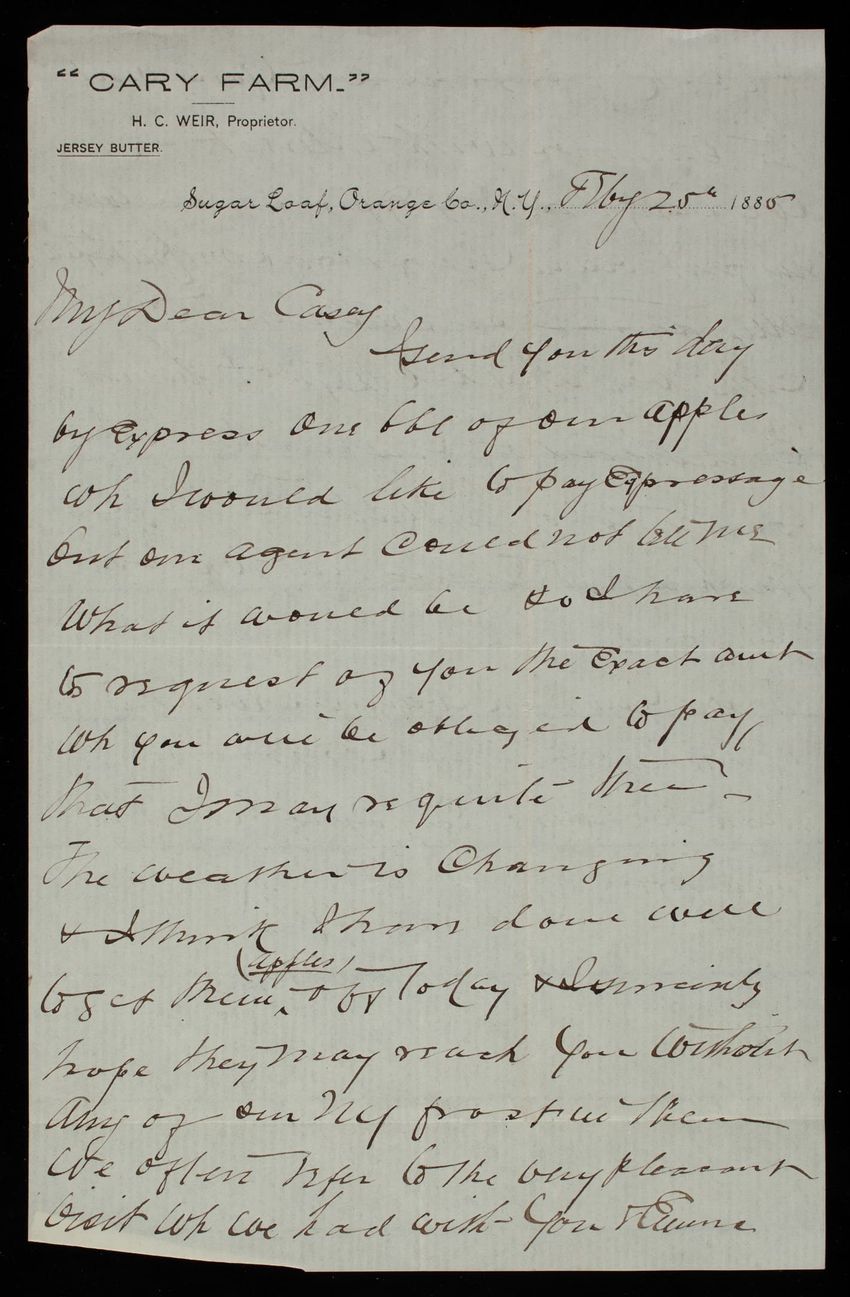 "CARY FARM."
H. C. WEIR, Proprietor.
JERSEY BUTTER.
Sugar Loaf, Orange Co., N.Y., Feby 25th 1885
My Dear Casey
I send you this day
by Express one bbl of our apples
wh I would like to pay Expressage
but our agent could not tell me
what it would be & so I have
to request of you the exact amt
wh you will be obliged to pay,
that I may requite thee -
The weather is changing
& I think I have done well
(apples)
to get them, off today & I sincerely
hope they may reach you without
any of our NY frost in them
We often refer to the very pleasant
visit wh we had with you & Emma